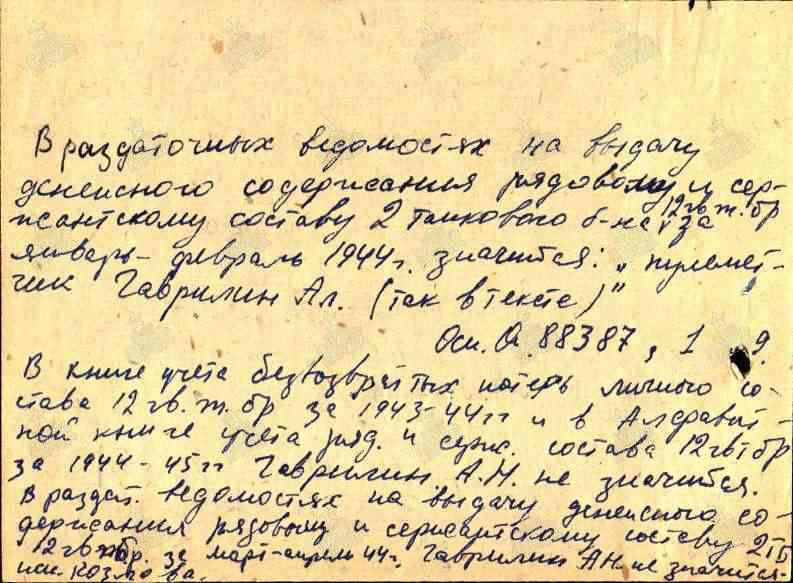 В раздаточных ведомостях на выдачу
денежного содержания рядовому и сер-
жантскому составу 2 танкового б-на 12 гв. т. бр за
январь - февраль 1944 г. значится: „пулемет-
чик Гаврилин Ал. (так в тексте)"
Осн. О. 88387, 1 9.
В книге учета безвозвратных потерь личного со-
става 12 гв. т. бр за 1943-44 гг и в Алфавит-
ной книге учета ряд. и серж. состава 12 гв т бр
за 1944-45 гг Гаврилин А.Н. не значится.
В раздат. ведомостях на выдачу денежного со-
держания рядовому и сержантскому составу 2 тб
12 гв тбр. за март-апрель 44 г. Гаврилин АН не значится.
исп. Козлова.